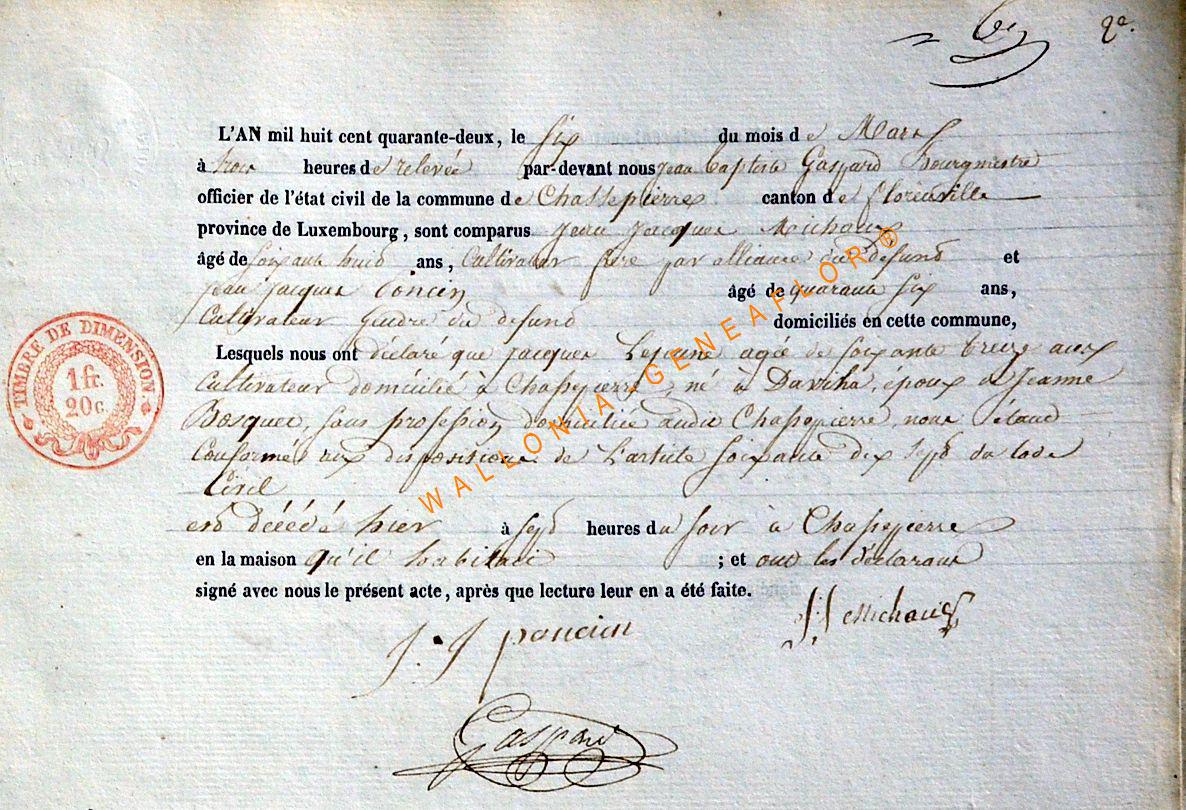 6 2e.
L'AN mil huit cent quarante-deux, le six du mois de Mars
à trois heures de relevée par-devant nous jean baptiste Gaspard Bourgmestre
officier de l'état civil de la commune de Chassepierre canton de florenville
province de Luxembourg, sont comparus Jean Jacques Michaux
âgé de soixante huit ans, Cultivateur frère par alliance du défunt et
jean jacques Poncin âgé de quarante six ans,
Cultivateur gendre du défunt domiciliés en cette commune,
Lesquels nous ont déclaré que jacques Lejeune agé de soixante treize ans
Cultivateur domicilié à Chassepierre, né à , époux de Jeanne
Bosquet, sans profession domiciliée audit Chassepierre, nous étant
Conformé aux dispositions de L'article soixante dix sept du Code
Civil
est décédé hier à sept heures du soir à Chassepierre
en la maison qu'il habitait ; et ont les déclarans
signé avec nous le présent acte, après que lecture leur en a été faite.
J. J poncin J J Michaux
Gaspard
TIMBRE DE DIMENSION.
1 fr.
20 c.
WALLONIA-GENEAFLOR®